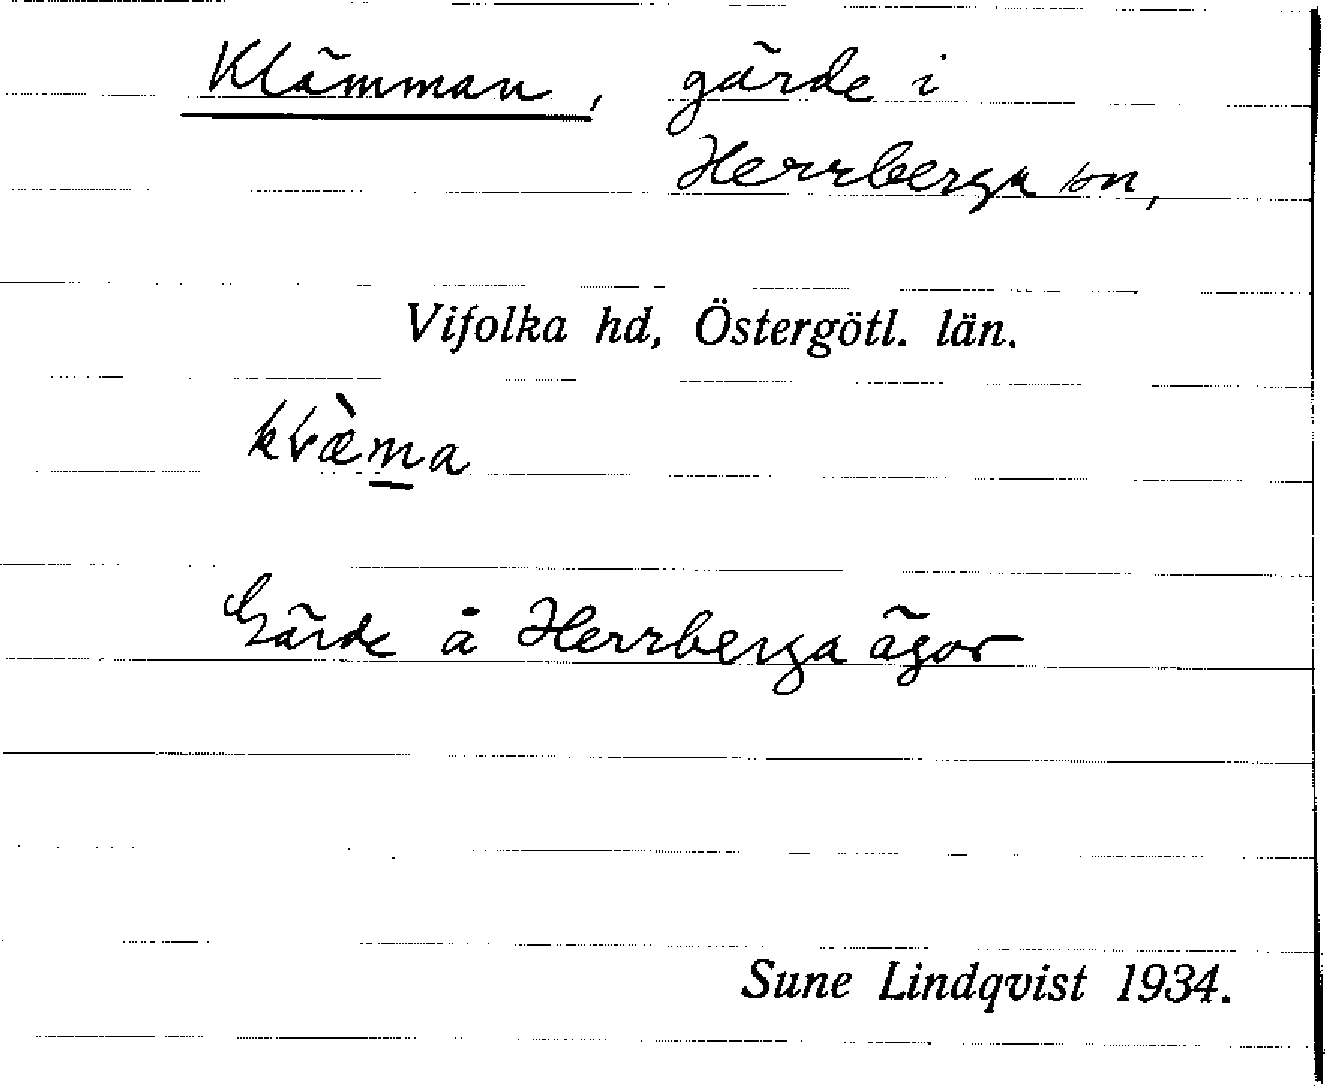 Klämman, gärde i
Herrberga sn,
Vifolka hd, Östergötl. län.
Gärde å Herrberga ägor
Sune Lindqvist 1934.